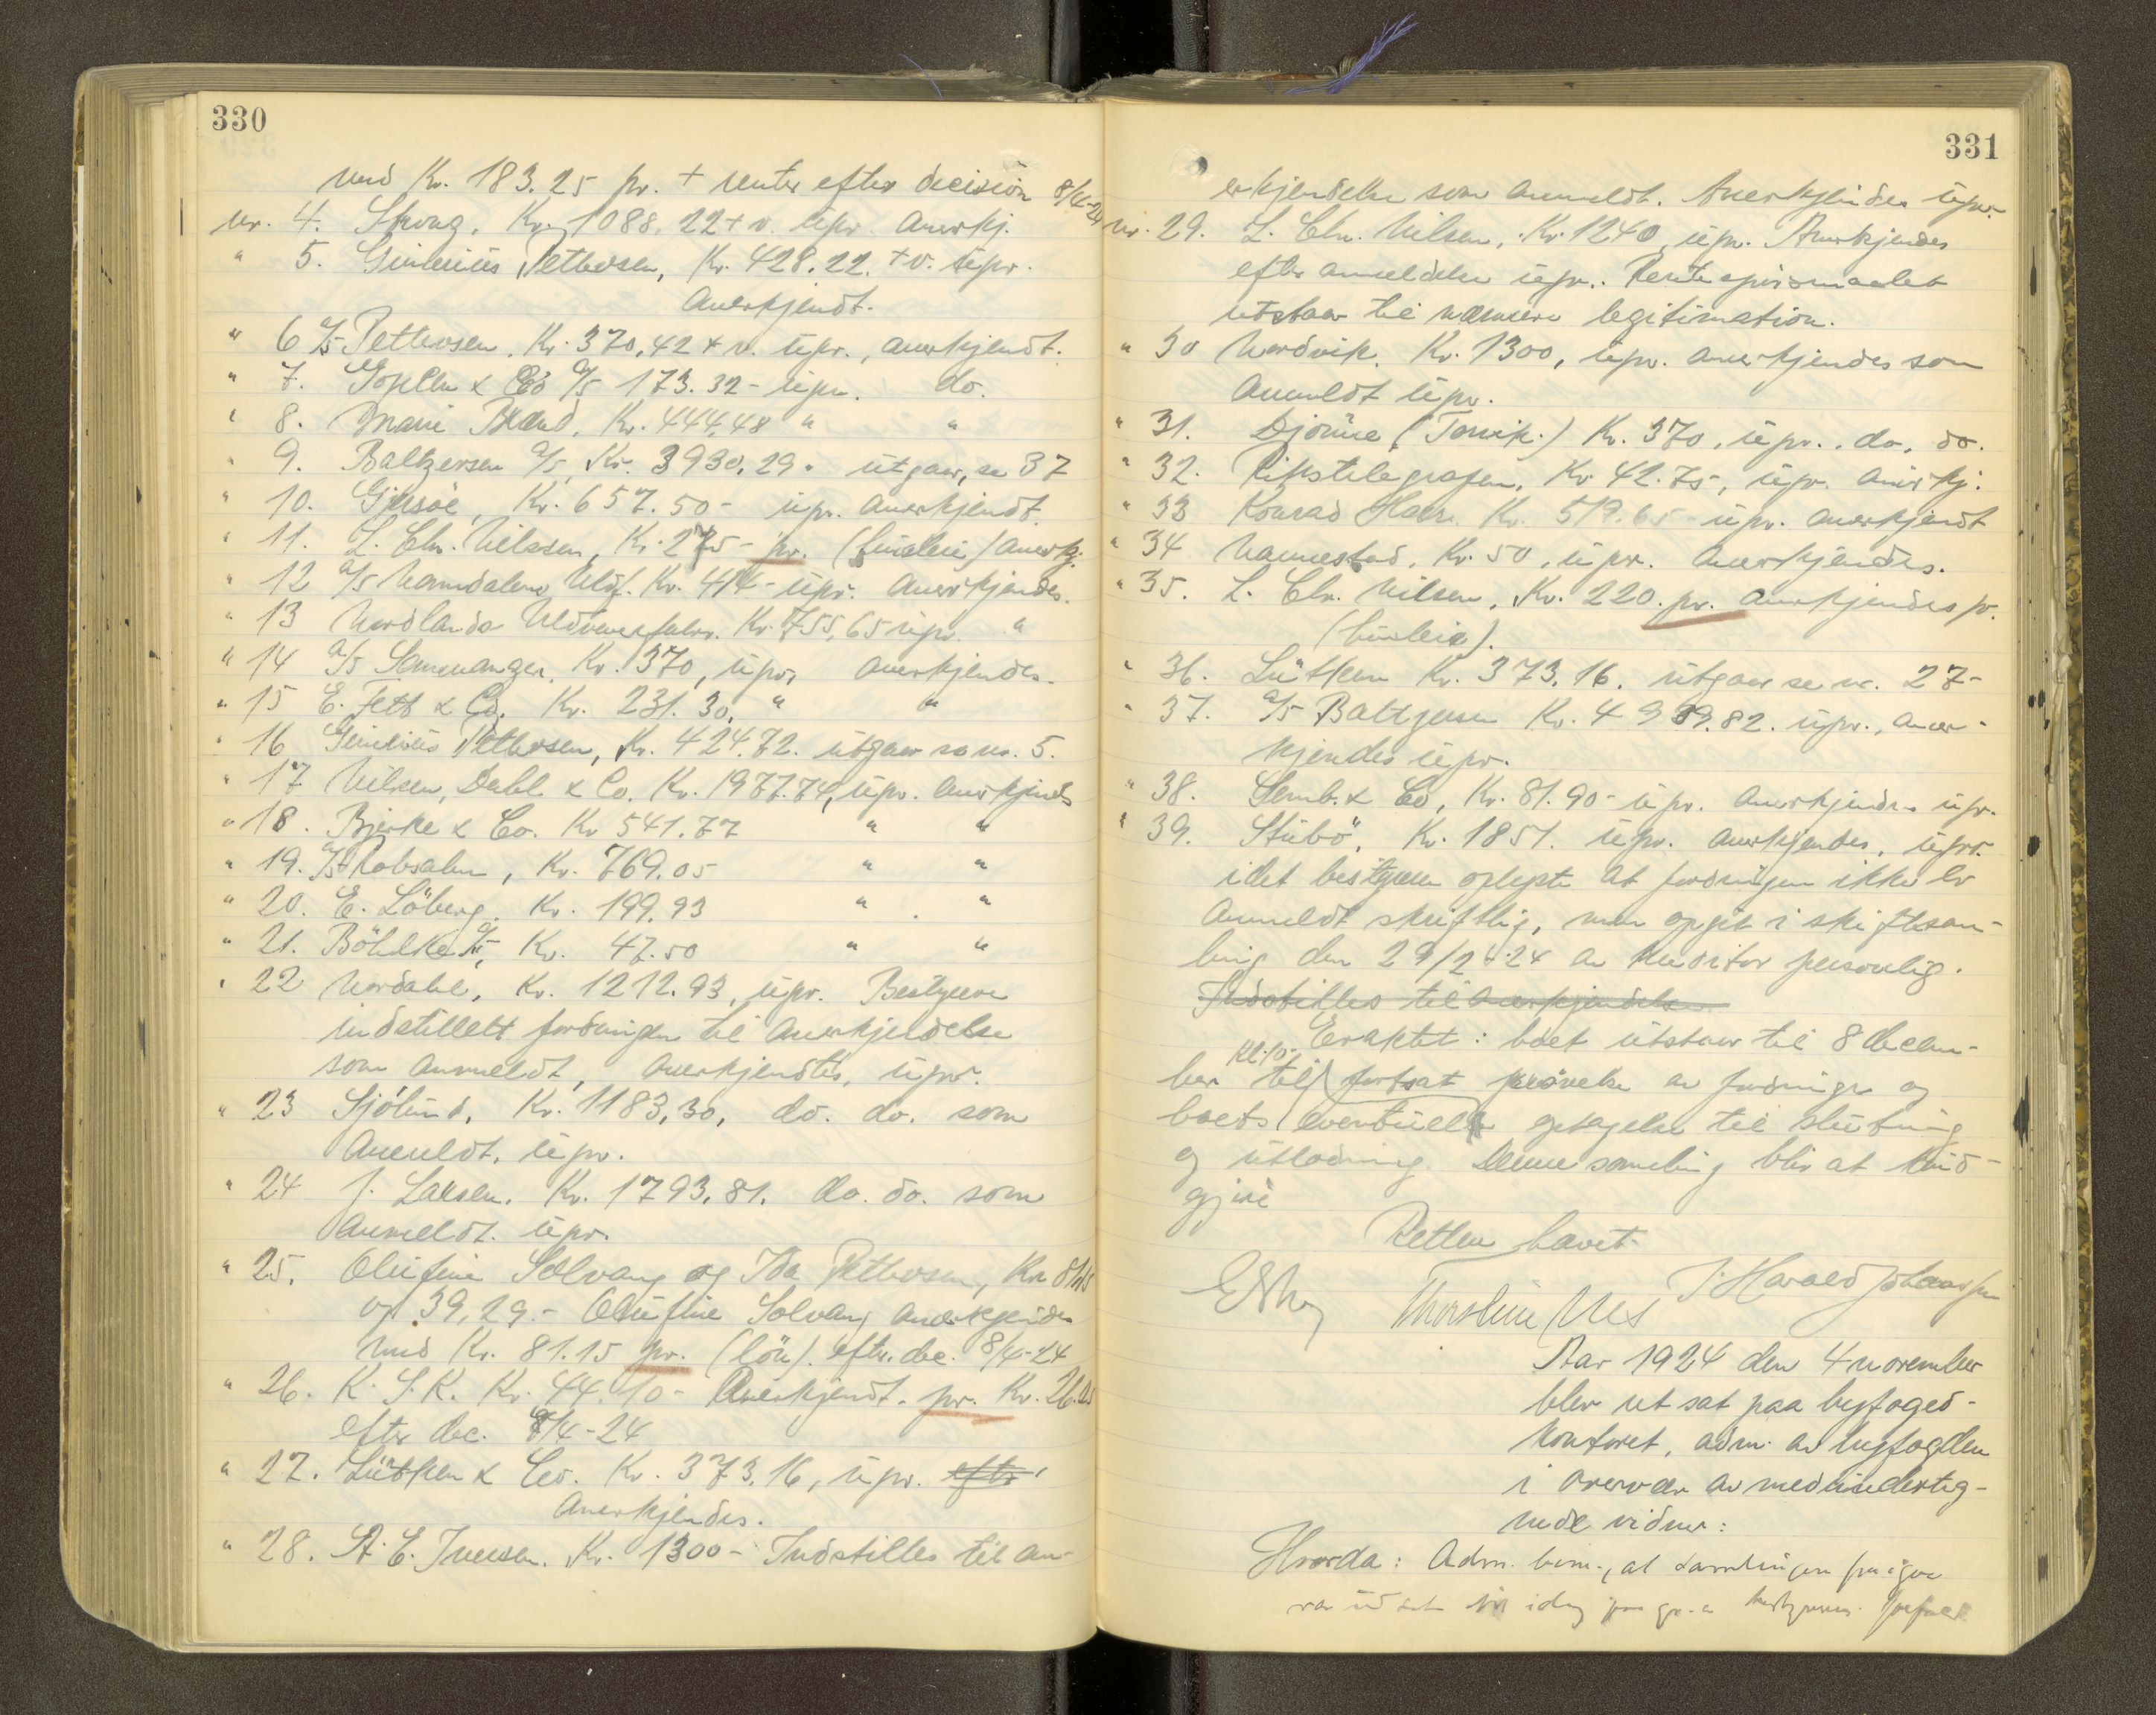 330
med Kr. 183.25 pr. + renter efter decision 8/4-24
nr. 4. Strong, Kr. 1088,22 + r. upr. anerkj.
" 5. Ginerius Pettersen, Kr. 428.22. + r. upr.
anerkjendt.
" 6 A/S Pettersen, Kr. 370,42 + r. upr., anerkjendt.
" 7. Goplen & Co A/S 173.32 - upr. do.
" 8. Marie Brand, Kr. 444,48 " "
" 9. Baltzersen A/S, Kr. 3930,29 " utgaar, se 37
" 10. Gjersöe, Kr. 657.50 - upr. anerkjendt.
" 11. L. Chr. Nilssen, Kr. 275 - pr. (husleie) anerkj.
" 12 A/S Namdalens Uldf. Kr. 414 - upr. anerkjendes.
" 13 Nordlands Uldvarefabr. Kr. 755,65 upr. "
" 14 A/S Samnanger, Kr. 370, upr. anerkjendes.
" 15 E. Fett & Co. Kr. 231.30, " "
" 16 Ginerius Pettersen, Kr. 424.72. utgaar se nr. 5.
" 17 Nilsen, Dahl & Co. Kr. 1977.74, upr. anerkjendes
" 18. Bjerke & Co. Kr 541.77 " "
" 19. A/S Robsahm, Kr. 769.05 " "
" 20. E. Löberg, Kr. 199.93 " . "
" 21. Böhlke A/S, Kr. 47.50 " "
" 22 Nordahl, Kr. 1212.93, upr. Bestyreren
indstillet fordringen til anerkjendelse
som anmeldt, anerkjendtes, upr.
" 23 Sjölund, Kr. 1183,30, do. do. som
anmeldt. upr.
" 24 J. Larsen. Kr. 1793,81. do. do. som
anmeldt. upr.
" 25. Olufine Solvang og Ida Pettersen, Kr. 81.15
og 39,29.- Olufine Solvang anerkjendes
med Kr. 81.15 pr. (lön). efter dec. 8/4-24
" 26. K. S. K. Kr. 44.10 - Anerkjendt. pr. Kr. 26.
efter dec. 8/4-24
" 27. Lütken & Co. Kr. 373.16, upr. efter
anerkjendes.
" 28. A. E. Iversen. Kr. 1300 - Indstilles til an-
331
erkjendelse som anmeldt. Anerkjendes upr.
nr. 29. L. Chr. Nilsen, Kr. 1240, upr. Anerkjendes
efter anmeldelse upr. Rentespörsmaalet
utstaar til nærmere legitimation.
" 30 Nordvik. Kr. 1300, upr. anerkjendes som
anmeldt upr.
" 31. Djönne (Torvik.) Kr. 370, upr. do. do.
" 32. Rikstelegrafen, Kr. 42.75, upr. anerkj.
" 33 Konrad Kr. 519.65 - upr. anerkjendt
" 34 Nannestad, Kr. 50, upr. anerkjendes.
" 35. L. Chr. Nilsen, Kr. 220. pr. anerkjendes pr.
(husleie).
" 36. Lütken Kr. 373,16. utgaar se nr. 27-
" 37. A/S Baltzersen Kr. 4939.82. upr., aner-
kjendes upr.
" 38. Semb. & Co, Kr. 81.90 - upr. anerkjendes upr.
" 39. Stubö, Kr. 1851. upr. anerkjendes, upr.
idet bestyreren oplyste at fordringen ikke er
anmeldt skriftlig, men opgit i skiftesam-
ling den 29/2-24 av kreditor personlig.
Indstilles til anerkjendelse
Eraktet: boet utstaar til 8 decem-
ber kl. 10- til fortsat prövelse av fordringer og
boets eventuelle optagelse til slutning
og utlodning. Denne samling blir at kund-
gjöre
Retten hævet
Thorstein Nes J. Harald Johansen
Aar 1924 den 4 november
blev ret sat paa byfoged-
kontoret, adm. av byfogden
i overvær av medundertegn-
nede vidner:
Hvorda: Adm. bem., at samlingen fra igaar
var utsat til idag paa gr. a bestyrerens forfald